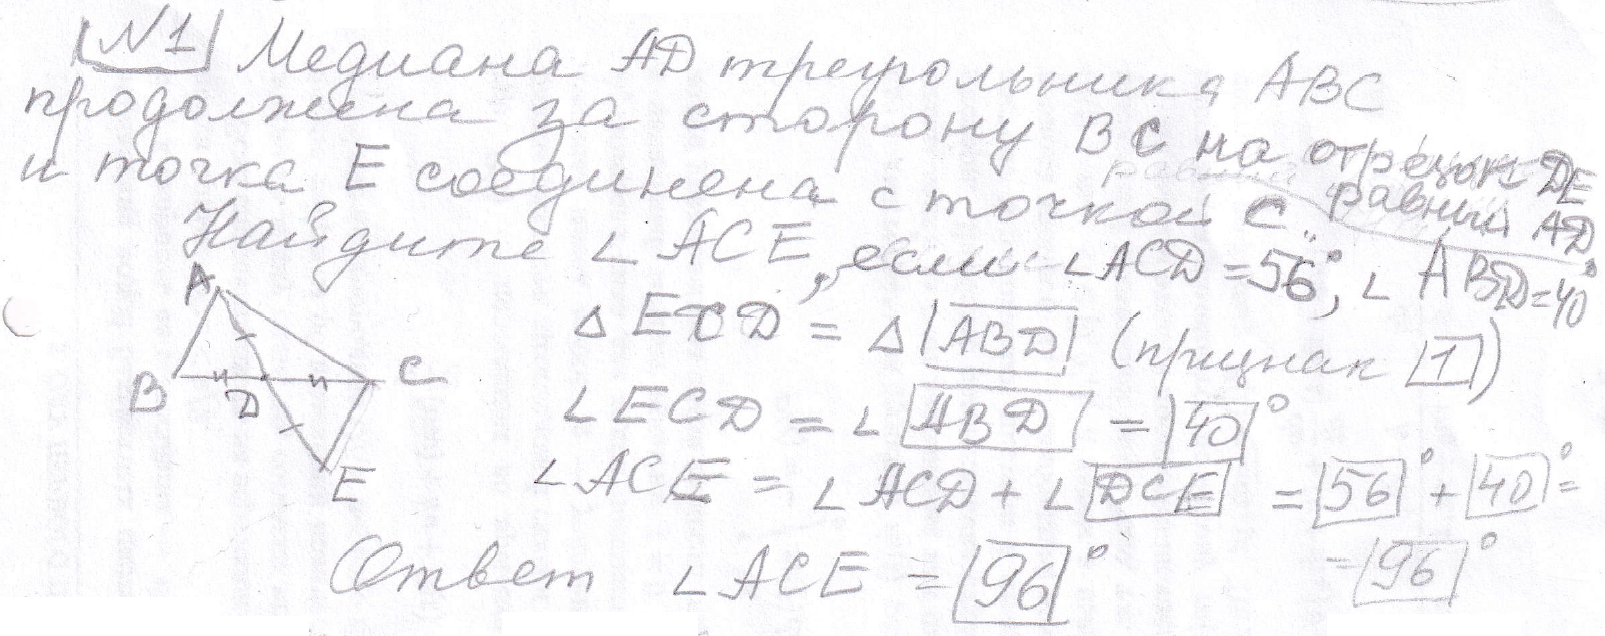 №1 Медиана AD треугольника ABC
продолжена за сторону BC на отрезок DE
равный AD
и точка E соединена с точкой C.
Найдите ∠ACE, если ∠ACD = 56°, ∠ABD = 40°
A
B
D
C
E
△ECD = △ABD (признак 1)
∠ECD = ∠ABD = 40°
∠ACE = ∠ACD + ∠DCE = 56° + 40° =
= 96°
Ответ ∠ACE = 96°